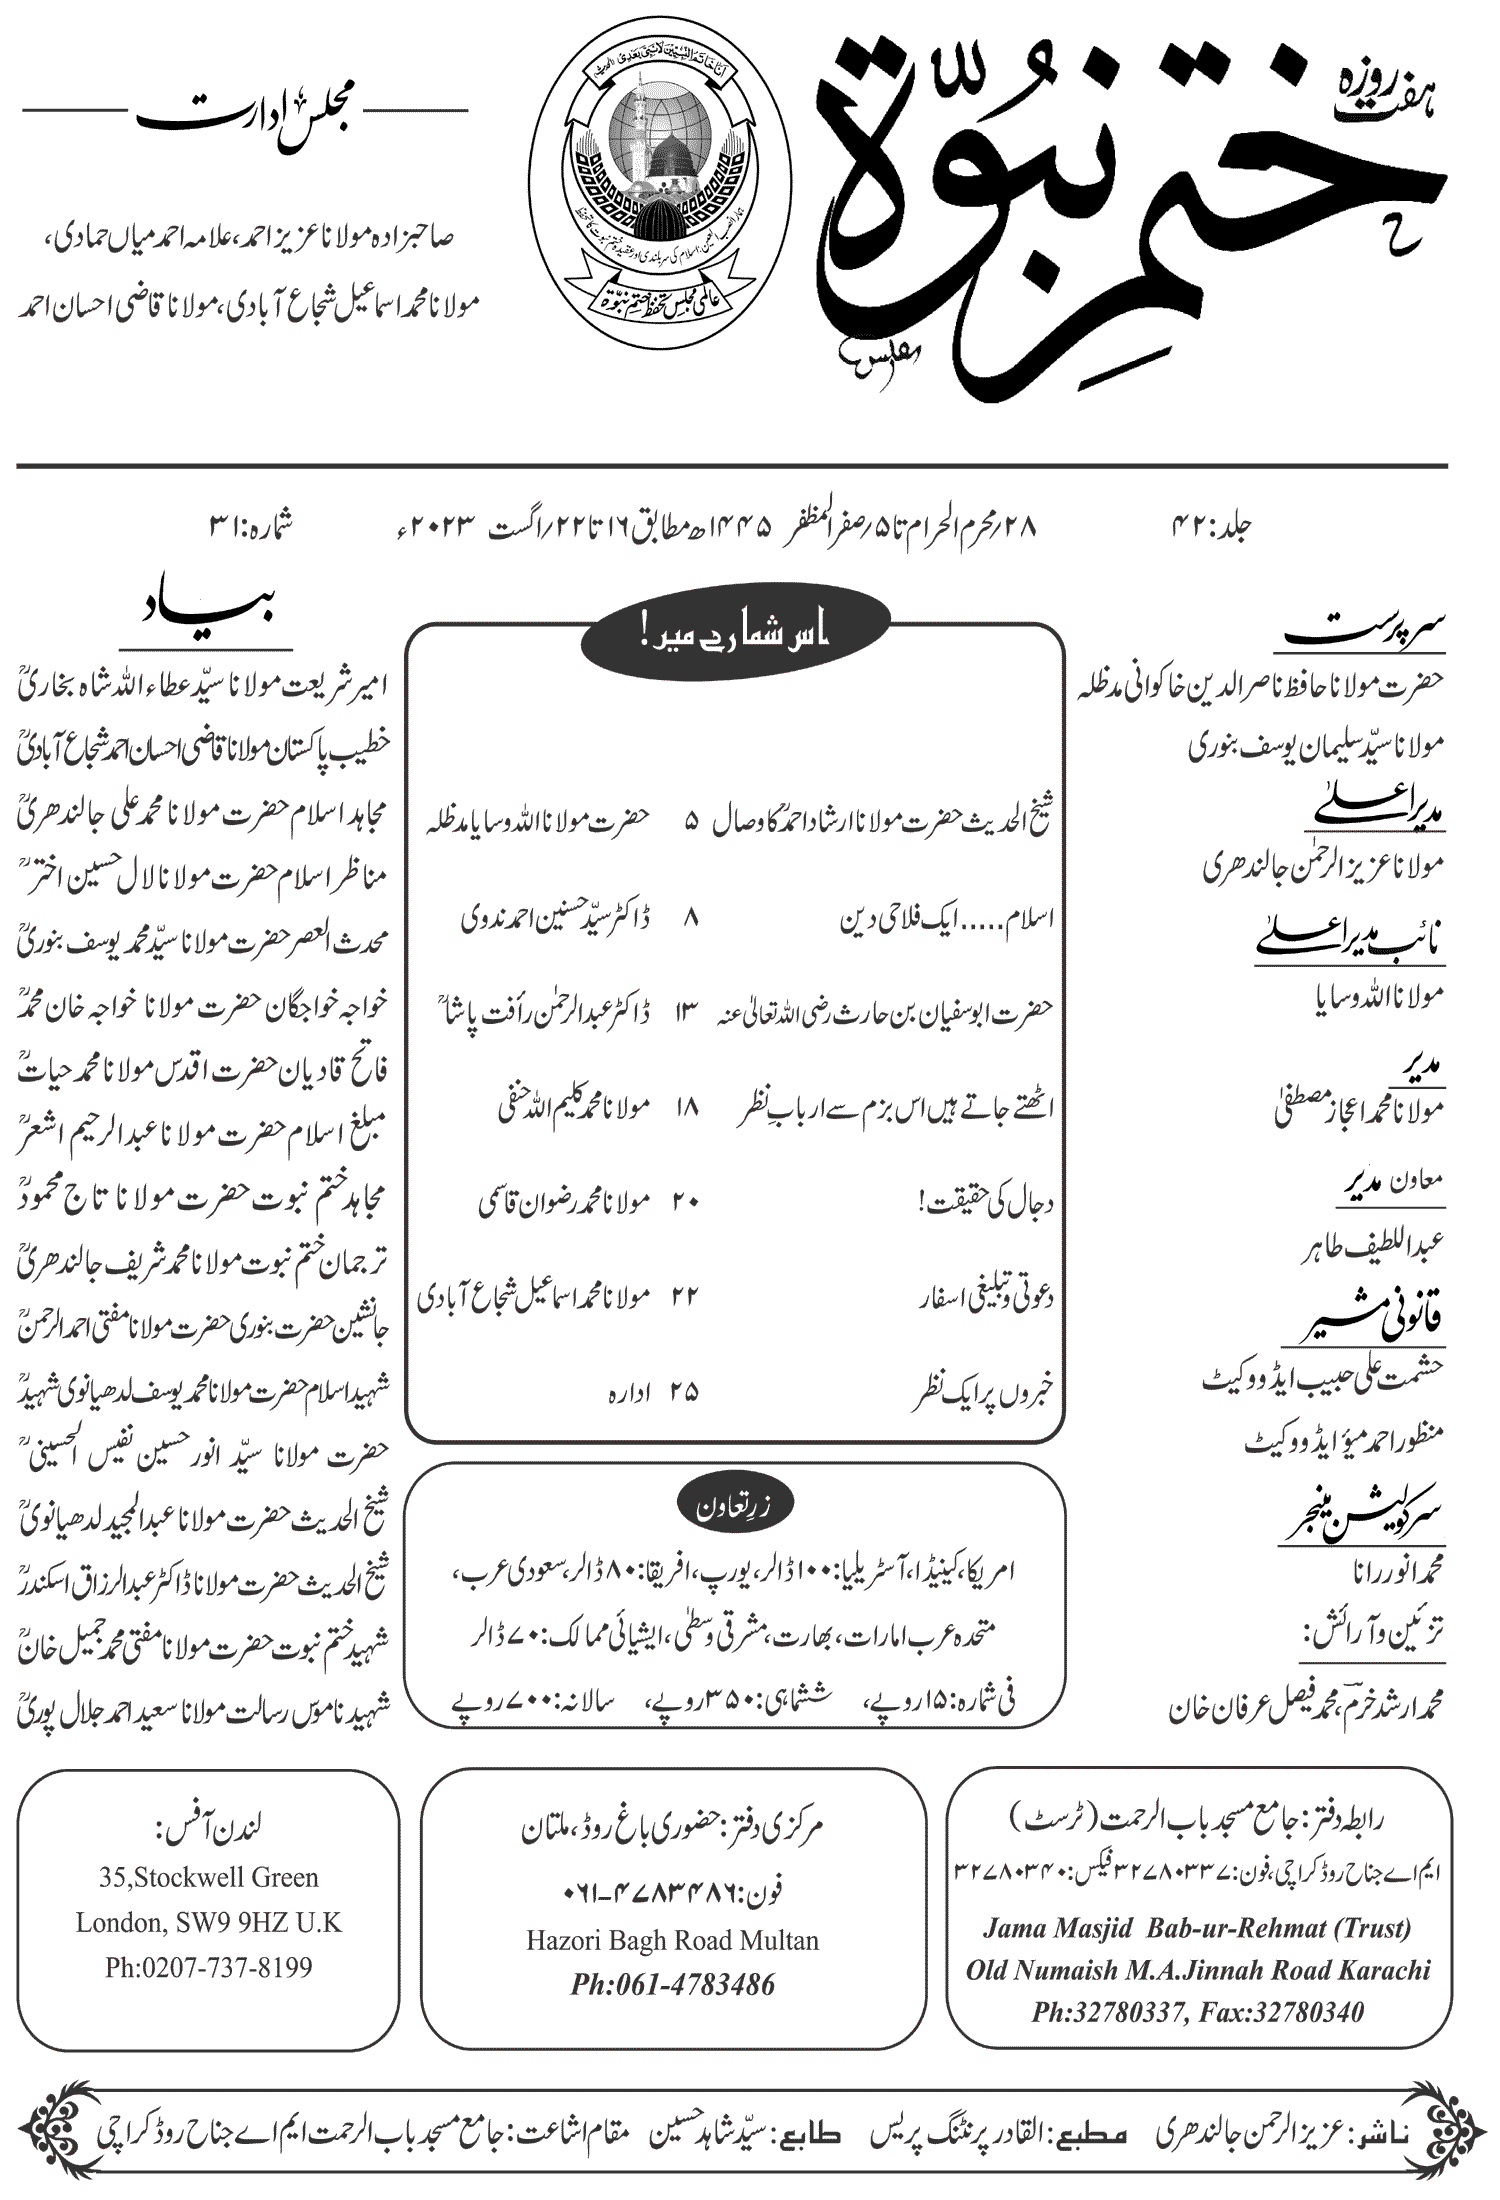 ہفت روزہ
ختم نبوّۃ
مجلس ادارت
صاحبزادہ مولانا عزیز احمد، علامہ احمد میاں حمادی،
مولانا محمد اسماعیل شجاع آبادی، مولانا قاضی احسان احمد
عالمی مجلس تحفظ ختم نبوّۃ
جلد: ۴۲
۲۸؍محرم الحرام تا ۵؍صفر المظفر ۱۴۴۵ھ مطابق ۱۶ تا ۲۲؍اگست ۲۰۲۳ء
شمارہ: ۳۱
سرپرست
حضرت مولانا حافظ ناصر الدین خاکوانی مدظلہ
مولانا سیّد سلیمان یوسف بنوری
مدیر اعلیٰ
مولانا عزیز الرحمٰن جالندھری
نائب مدیر اعلیٰ
مولانا اللہ وسایا
مدیر
مولانا محمد اعجاز مصطفیٰ
معاون مدیر
عبد اللطیف طاہر
قانونی مشیر
حشمت علی حبیب ایڈووکیٹ
منظور احمد میؤ ایڈووکیٹ
سرکولیشن مینجر
محمد انور رانا
تزئین و آرائش:
محمد ارشد خرم، محمد فیصل عرفان خان
اس شمارے میں!
شیخ الحدیث حضرت مولانا ارشاد احمدؒ کا وصال ۵ حضرت مولانا اللہ وسایا مدظلہ
اسلام..... ایک فلاحی دین ۸ ڈاکٹر سیّد حسنین احمد ندوی
حضرت ابوسفیان بن حارث رضی اللہ تعالیٰ عنہ ۱۳ ڈاکٹر عبدالرحمٰن رأفت پاشاؒ
اٹھتے جاتے ہیں اس بزم سے اربابِ نظر ۱۸ مولانا محمد کلیم اللہ حنفی
دجال کی حقیقت! ۲۰ مولانا محمد رضوان قاسمی
دعوتی و تبلیغی اسفار ۲۲ مولانا محمد اسماعیل شجاع آبادی
خبروں پر ایک نظر ۲۵ ادارہ
زرِ تعاون
امریکا، کینیڈا، آسٹریلیا: ۱۰۰ ڈالر، یورپ، افریقا: ۸۰ ڈالر، سعودی عرب،
متحدہ عرب امارات، بھارت، مشرقِ وسطیٰ، ایشیائی ممالک: ۷۰ ڈالر
فی شمارہ: ۱۵ روپے، ششماہی: ۳۵۰ روپے، سالانہ: ۷۰۰ روپے
بیاد
امیر شریعت مولانا سیّد عطاء اللہ شاہ بخاریؒ
خطیب پاکستان مولانا قاضی احسان احمد شجاع آبادیؒ
مجاہد اسلام حضرت مولانا محمد علی جالندھریؒ
مناظر اسلام حضرت مولانا لال حسین اخترؒ
محدث العصر حضرت مولانا سیّد محمد یوسف بنوریؒ
خواجہ خواجگان حضرت مولانا خواجہ خان محمدؒ
فاتح قادیان حضرت اقدس مولانا محمد حیاتؒ
مبلغ اسلام حضرت مولانا عبدالرحیم اشعرؒ
مجاہد ختم نبوت حضرت مولانا تاج محمودؒ
ترجمان ختم نبوت مولانا محمد شریف جالندھریؒ
جانشین حضرت بنوری حضرت مولانا مفتی احمد الرحمنؒ
شہید اسلام حضرت مولانا محمد یوسف لدھیانوی شہیدؒ
حضرت مولانا سیّد انور حسین نفیس الحسینیؒ
شیخ الحدیث حضرت مولانا عبدالمجید لدھیانویؒ
شیخ الحدیث حضرت مولانا ڈاکٹر عبدالرزاق اسکندرؒ
شہید ختم نبوت حضرت مولانا مفتی محمد جمیل خانؒ
شہید ناموس رسالت مولانا سعید احمد جلال پوریؒ
رابطہ دفتر: جامع مسجد باب الرحمت (ٹرسٹ)
ایم اے جناح روڈ کراچی، فون: ۳۲۷۸۰۳۳۷ فیکس: ۳۲۷۸۰۳۴۰
Jama Masjid Bab-ur-Rehmat (Trust)
Old Numaish M.A.Jinnah Road Karachi
Ph:32780337, Fax:32780340
مرکزی دفتر: حضوری باغ روڈ، ملتان
فون: ۰۶۱-۴۷۸۳۴۸۶
Hazori Bagh Road Multan
Ph:061-4783486
لندن آفس:
35,Stockwell Green
London, SW9 9HZ U.K
Ph:0207-737-8199
ناشر: عزیز الرحمن جالندھری مطبع: القادر پرنٹنگ پریس طابع: سیّد شاہد حسین مقام اشاعت: جامع مسجد باب الرحمت ایم اے جناح روڈ کراچی